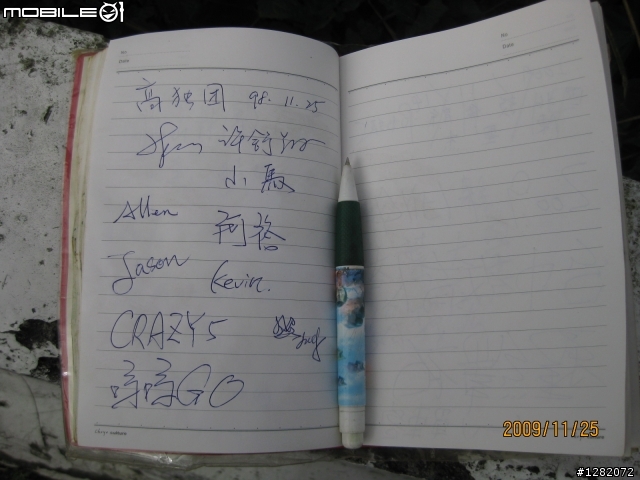 MOBILE01
No
Date
No
Date
高独团 98.11.25
小殿
Allen 阿裕
Jason Kevin.
CRAZY5
哼哼GO
2009/11/25
#1282072